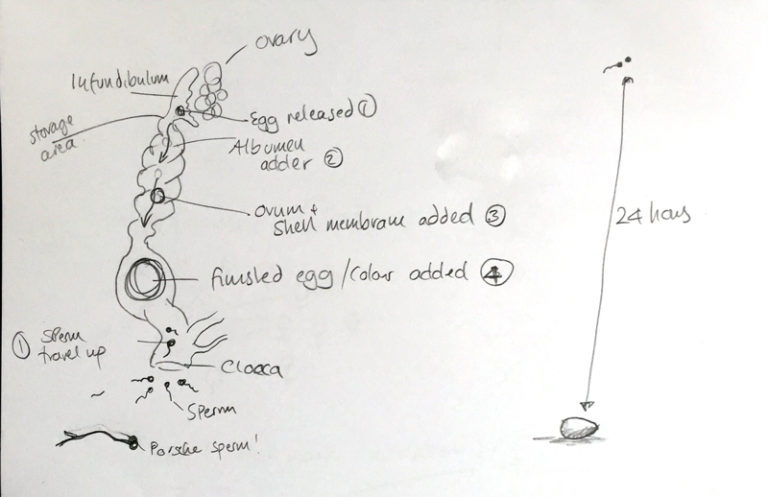 ovary
Infundibulum
storage
area
Egg released ①
Albumen
adder ②
Ovum +
Shell membrane added ③
finished egg / Colour added ④
① Sperm
travel up
Cloaca
Sperm
Porsche sperm!
24 hours